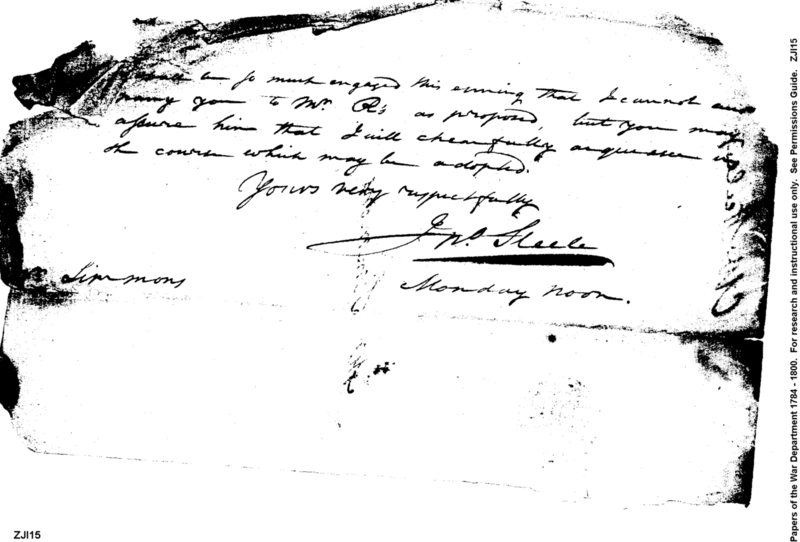 shall be so much engaged this evening that I cannot
you to Mr. R's as proposed, but you may
assure him that I will chearfully acquiesce in
the course which may be adopted.
Yours very respectfully
Jno. Steele
Simmons
Monday noon.
ZJI15
Papers of the War Department 1784 - 1800. For research and instructional use only. See Permissions Guide. ZJI15